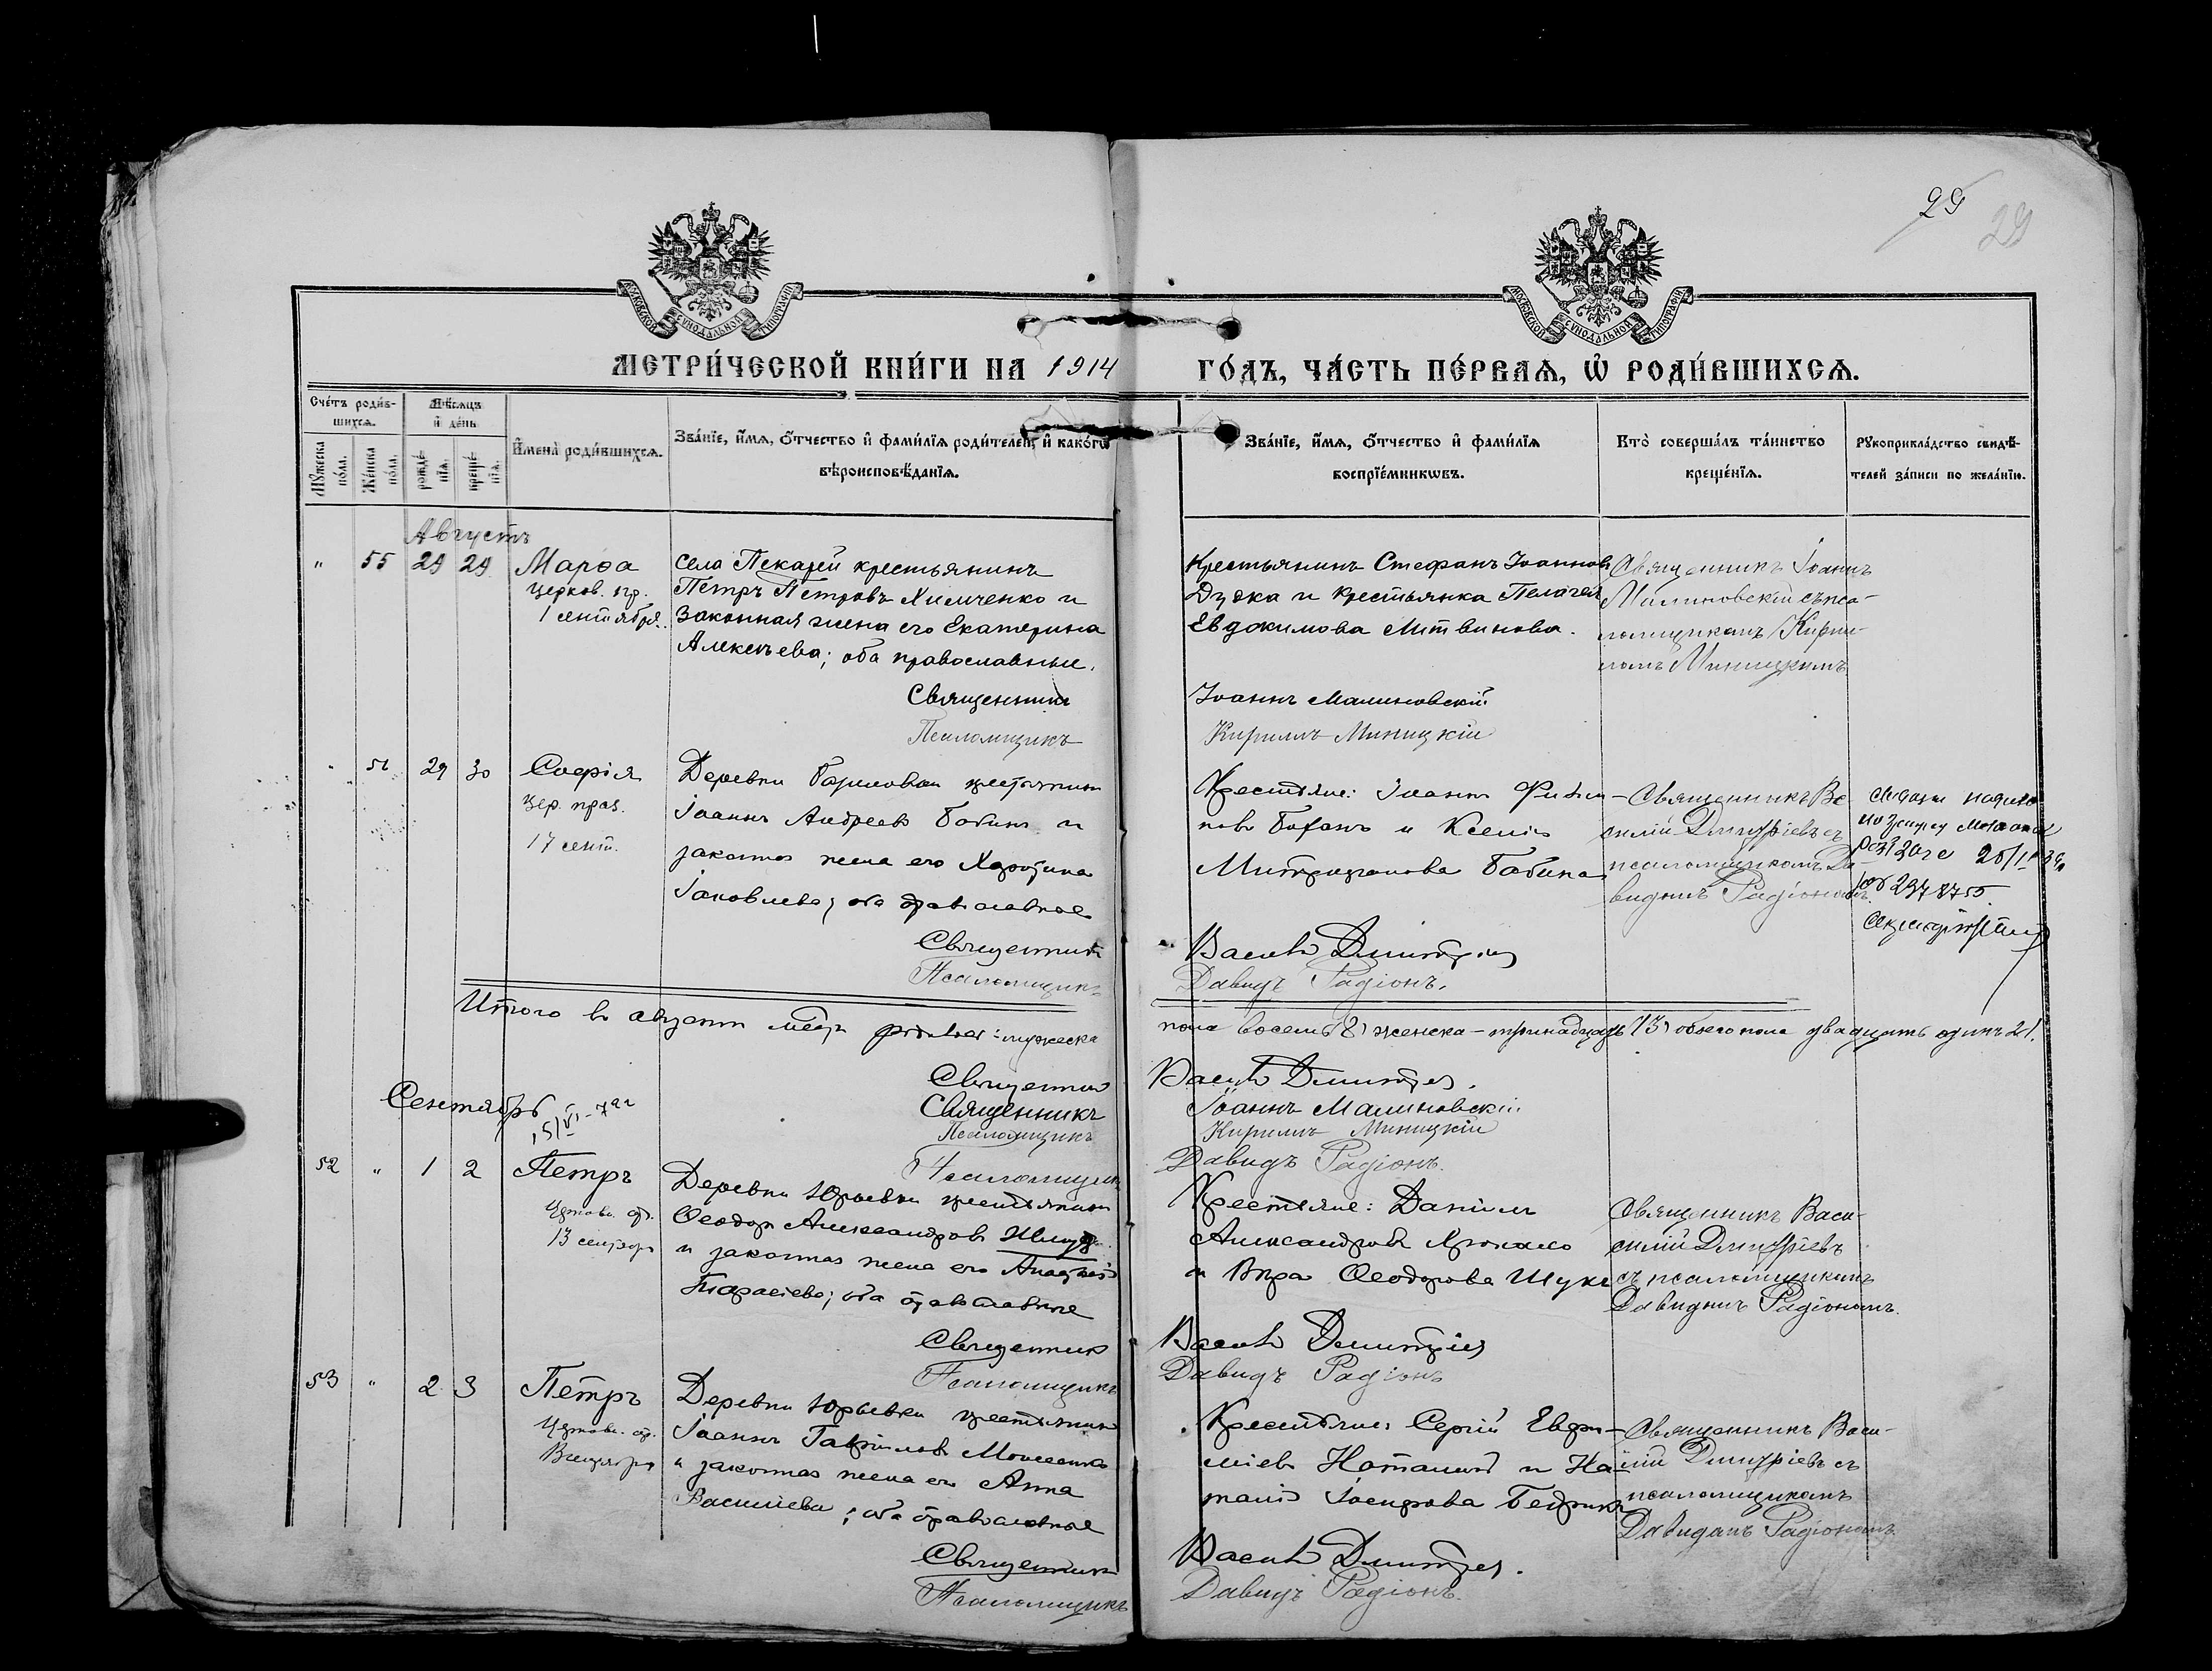 29
29
МОСКОВСКОЙ СѴНОДАЛЬНОЙ ТИПОГРАФІИ
МОСКОВСКОЙ СѴНОДАЛЬНОЙ ТИПОГРАФІИ
МЕТРИ́ЧЕСКОЙ КНИ́ГИ НА 1914 ГО́ДЪ, ЧА́СТЬ ПЕ́РВАѦ, Ѡ҆ РОДИ́ВШИХСѦ.
Сче́тъ роди́в-
шихсѧ.
Мѣ́сѧцъ
и҆ де́нь
Мꙋ́жеска
по́ла.
Же́нска
по́ла.
рожде́-
нїѧ.
креще́-
нїѧ.
И҆мена̀ роди́вшихсѧ.
Зва́нїе, и҆́мѧ, ѻ҆́тчество и҆ фами́лїѧ роди́телей, и҆ како́гѡ
вѣроисповѣ́данїѧ.
Зва́нїе, и҆́мѧ, ѻ҆́тчество и҆ фами́лїѧ
воспрїе́мникѡвъ.
Кто̀ соверша́лъ та́инство
креще́нїѧ.
Рꙋкоприкла́дство свидѣ́-
телей за́писи по жела́нїю.
Августъ
" 55 29 29 Марѳа
Церков. пр.
1 сентября.
Села Пекарей крестьянинъ
Петръ Петровъ Химченко и
законная жена его Екатерина
Алексѣева; оба православные.
Священникъ
Псаломщикъ
Крестьянинъ Стефанъ Іоанновъ
Дудка и крестьянка Пелагея
Евдокимова Литвинова.
Іоаннъ Малиновскій
Кириллъ Миницкій
Священникъ Іоаннъ
Малиновскій съ пса-
ломщикомъ Кирил-
ломъ Миницкимъ
29 30 Софія
Цер. праз.
17 сент.
Деревни крестьянинъ
Іоаннъ Андреевъ Бабинъ и
законная жена его
Іаковлева; оба православные
Священникъ
Псаломщикъ
Крестьяне: Іоаннъ
и Ксенія
Митрофанова Бабина
Василій Димитріевъ
Давидъ Радіонъ.
Священникъ Ва-
силій Димитріевъ съ
псаломщикомъ Да-
видомъ Радіономъ
2978755.
Итого въ августѣ мѣсяцѣ родилось: мужеска
пола восемь 8, женска – тринадцать 13, обоего пола двадцать одинъ 21.
Священникъ
Священникъ
Псаломщикъ
Псаломщикъ
Василій Димитріевъ.
Іоаннъ Малиновскій
Кириллъ Миницкій
Давидъ Радіонъ.
Сентябрь
52 " 1 2 Петръ
Церковн. пр.
13 сентября
Деревни Юрьевки крестьянинъ
Ѳеодоръ Александровъ
и законная жена его
Тарасіева; оба православные
Священникъ
Псаломщикъ
Крестьяне: Даніилъ
Александровъ
и Вѣра Ѳеодорова
Василій Димитріевъ
Давидъ Радіонъ
Священникъ Васи-
силій Димитріевъ
съ псаломщикомъ
Давидомъ Радіономъ.
53 " 2 3 Петръ
Церковн. пр.
Деревни Юрьевки крестьянинъ
Іоаннъ Гавріиловъ
и законная жена его Анна
Василіева; оба православные
Священникъ
Псаломщикъ
Крестьяне: Сергій
и На-
талія Іосифова
Василій Димитріевъ.
Давидъ Радіонъ.
Священникъ Васи-
лій Димитріевъ съ
псаломщикомъ
Давидомъ Радіономъ